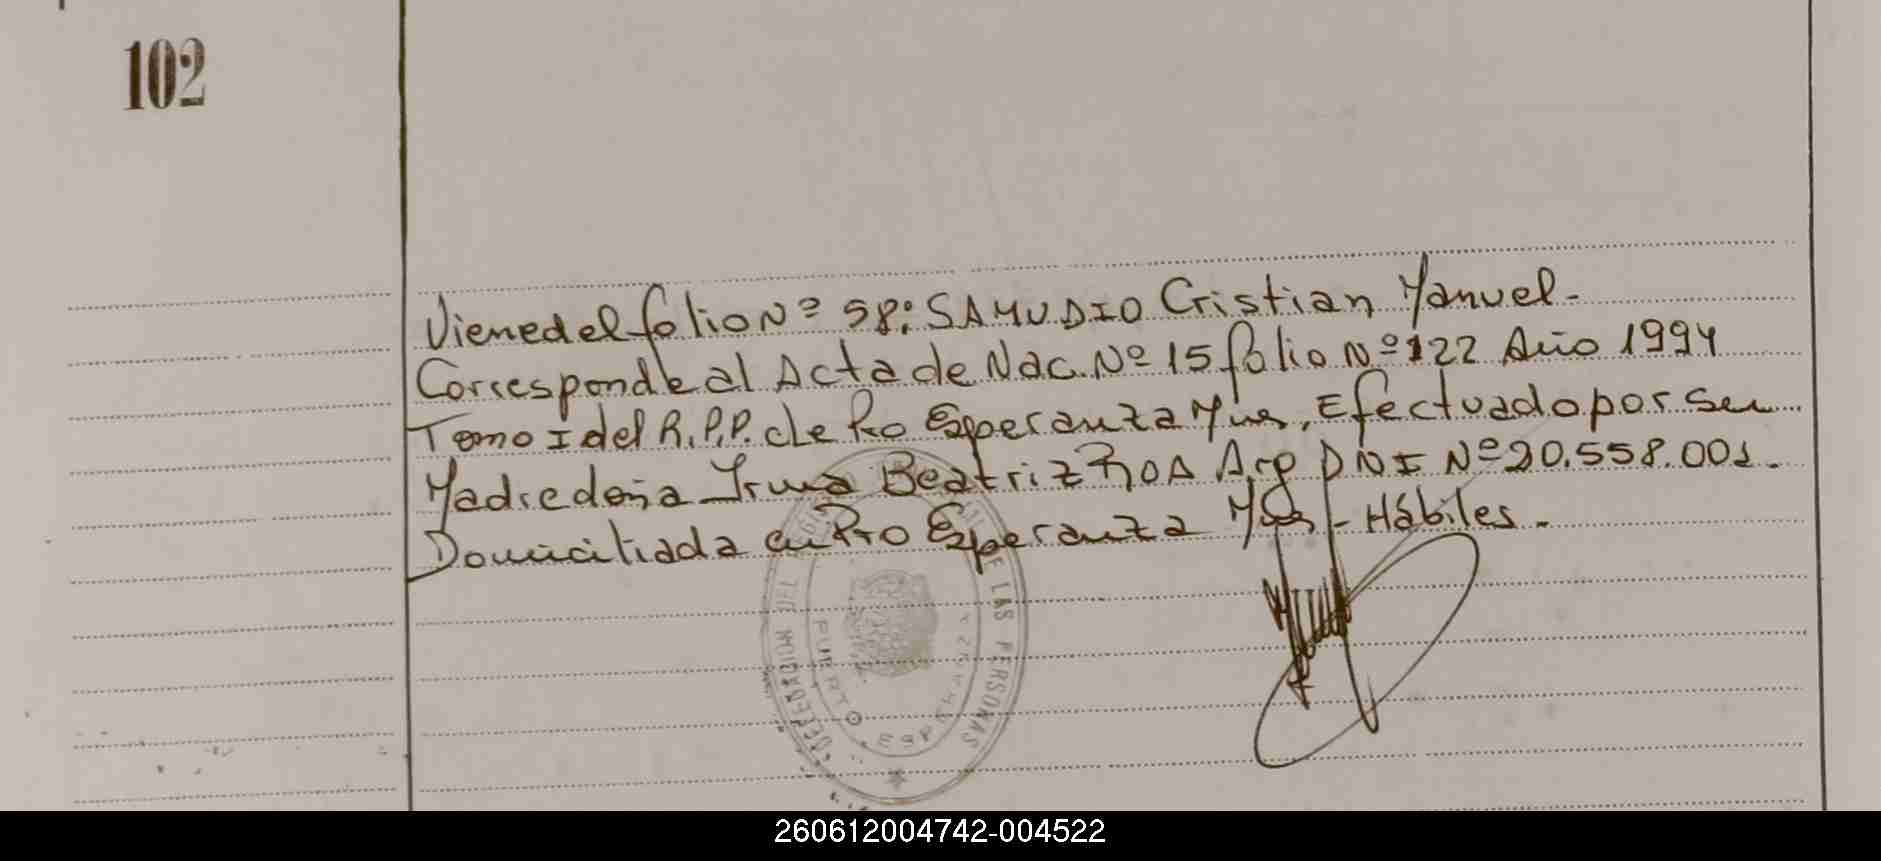 102
Viene del folio Nº 58: SAMUDIO Cristian Manuel-
Corresponde al Acta de Nac. Nº 15 folio Nº 122 Año 1994
Tomo I del R.P.P. de Pto Esperanza Mnes, Efectuado por su
Madre doña Irma Beatriz ROA Arg DNI Nº 20.558.001.
Domiciliada en Pto Esperanza Mnes - Hábiles.-
DE LAS PERSONAS
DEPENDENCIA DEL
PUERTO ESPERANZA
260612004742-004522